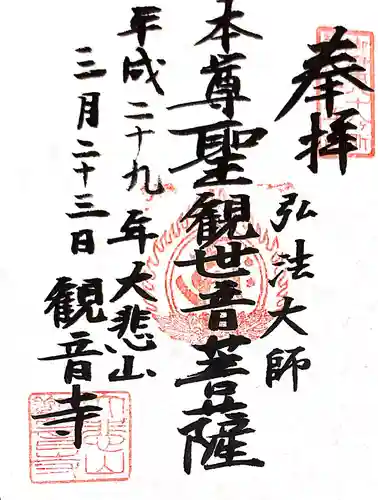 奉拝
弘法大師
本尊聖観世音菩薩
平成二十九年大悲山
三月二十三日
観音寺